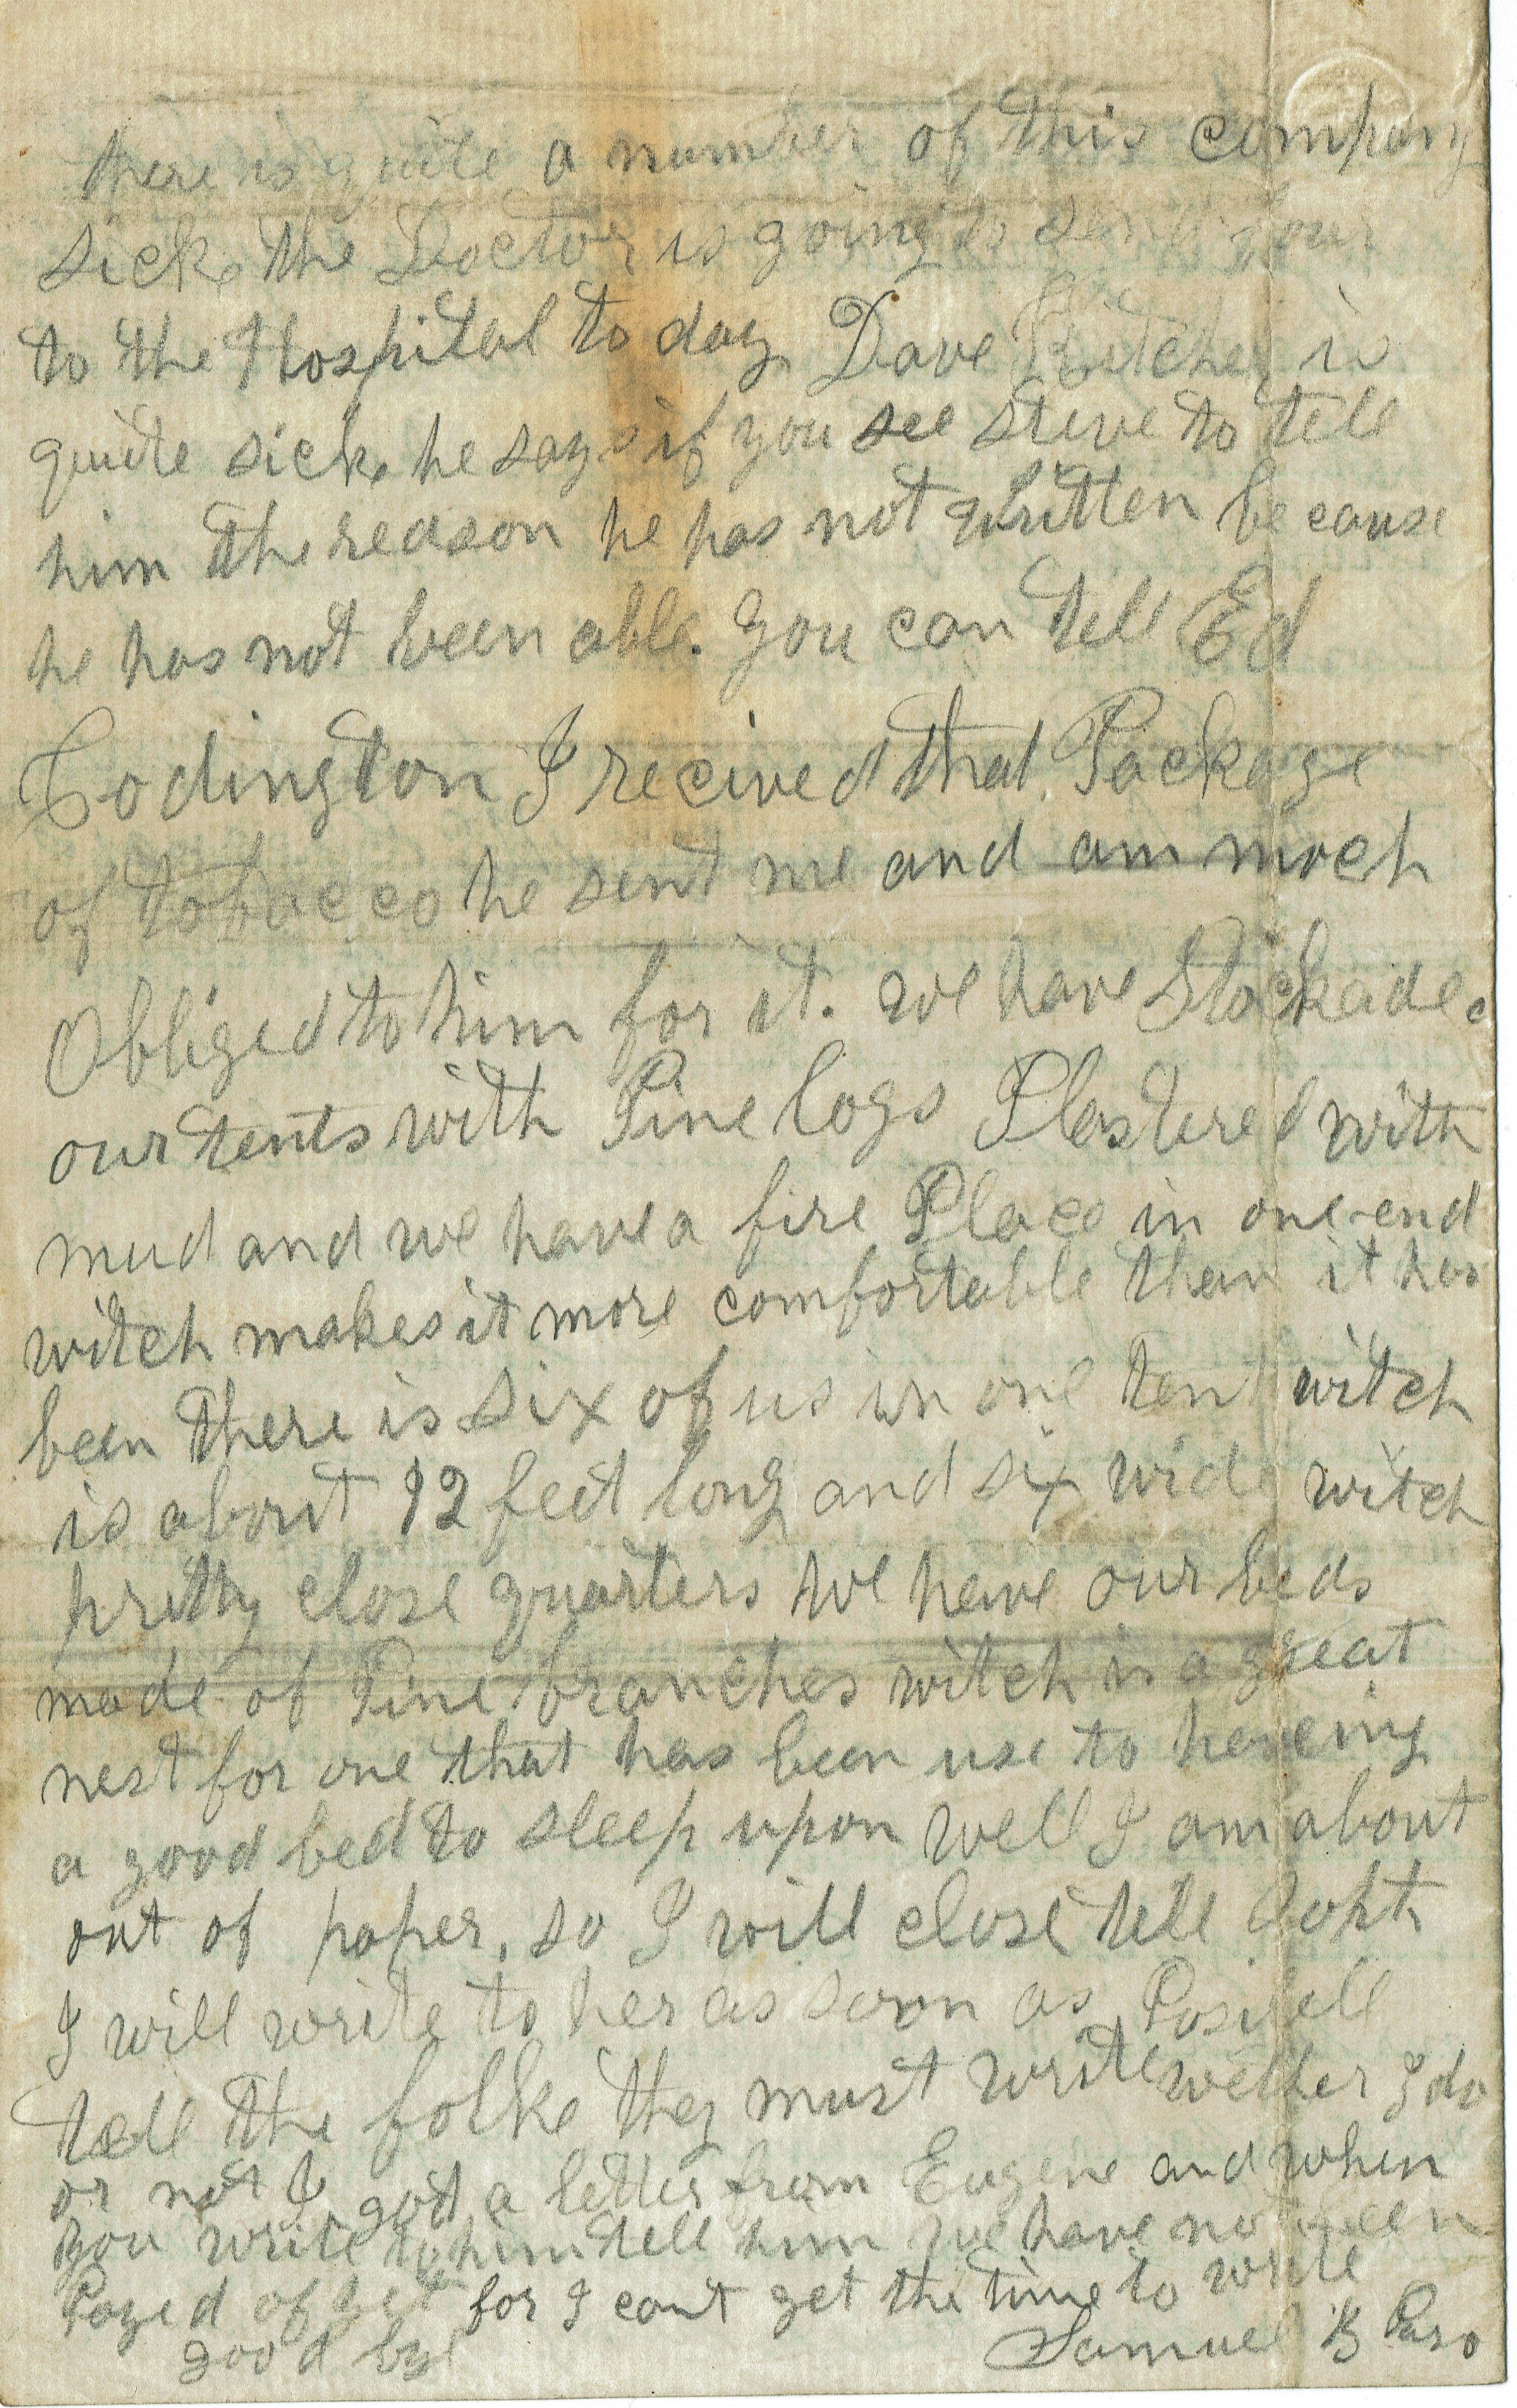 there is quite a number of this company
sick, the Doctor is going to send four
to the Hospital to day, Dave is
quite sick, he says if you see steve to tell
him the reason he has not written be cause
he has not been able. You can tell Ed
Codington I recived that Package
of tobacco he sent me and am moch
Obliged to him for it. we have Stockaded
our tents with Pine logs Plastered with
mud and we have a fire Place in one end
witch makes it more comfortable than it has
been there is six of us in one tent witch
is about 12 feet long and six wide witch
pritty close quarters we have our beds
made of Pine branches witch is a great
nest for one that has been use to haveing
a good bed to sleep upon well I am about
out of paper, so I will close tell
I will write to her as soon as Posibell
tell the folks they must write wether I do
or not I got a letter from Eugene and when
you write to him tell him we have not been
Payed of yet for I cant get the time to write
good bye Samuel B